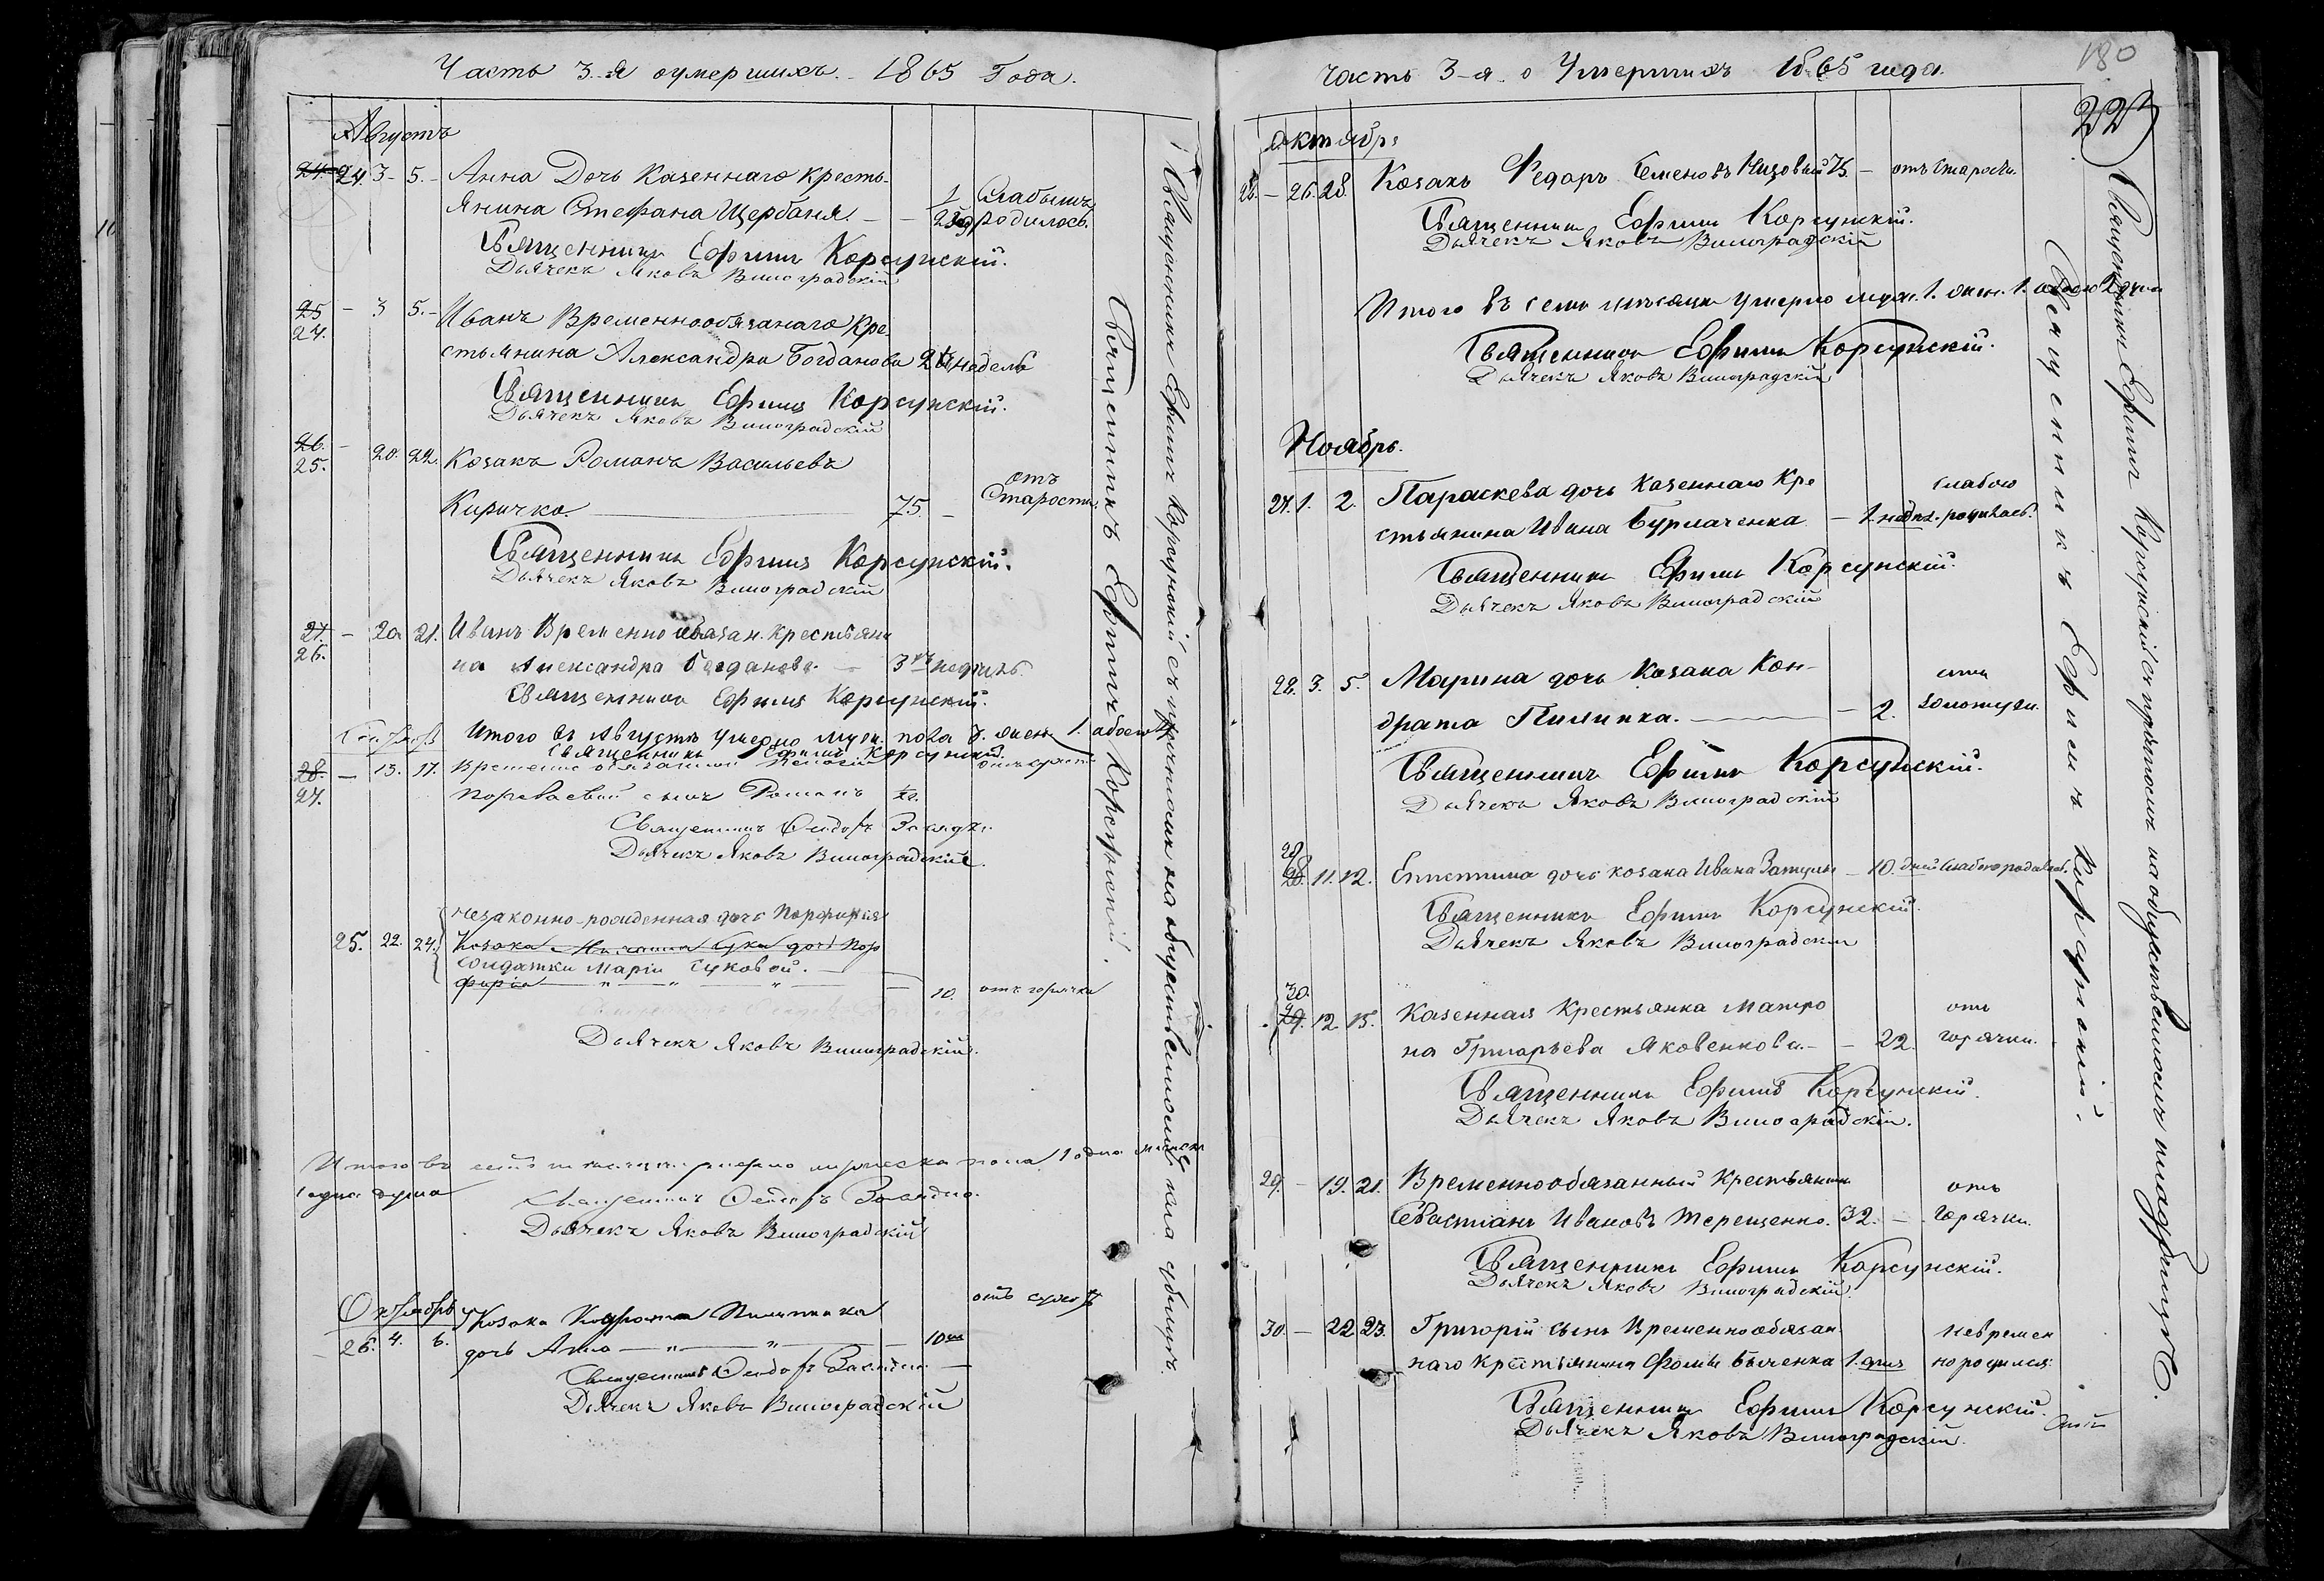 Часть 3-я оумершихъ. 1865 Года.
Августъ
24. 24. 3 - 5. - Анна Дочь Казеннаго кресть-
янина Стефана Щербаня. - - 1 Слабымъ
родилось.
Священникъ Ефимъ Корсунскій.
Дьячекъ Яковъ Виноградскій
25 - 3 5. - Иванъ Временнообязанаго Кре
24. стьянина Александра Богданова 2 недель
Священникъ Ефимъ Корсунскій.
Дьячекъ Яковъ Виноградскій
26. - 20. 22. Козакъ Романъ Васильевъ
25.
Киричко. 75. - отъ Старости.
Священникъ Ефимъ Корсунскій.
Дьячекъ Яковъ Виноградскій
27. - 20 21. Иванъ Временно обязан. крестьяни
26. на Александра Богданова. - 3 недель
Священникъ Ефимъ Корсунскій.
Итого въ Августѣ умерло муж. пола 3. жен. 1. обоего
Священникъ Ефимъ Корсунскій.
28. - 15. 17. Временно обязанный
27. сынъ Романъ
Священникъ
Дьячекъ Яковъ Виноградскій.
незаконно-рожденная дочь Порфирія
25. 22. 24. Козака дочь Пор
Солдатки Маріи Суковой. -
фирія - " - " - " - - 10. отъ горячки
Дьячекъ Яковъ Виноградскій.
Итого въ мужеска пола 1 одна женска
1 одна душа
Священникъ
Дьячекъ Яковъ Виноградскій
Октябрь Козака Кондрата Пилипка отъ сухотъ
26. 4. 6. дочь Анна - " - " - 10
Священникъ
Дьячекъ Яковъ Виноградскій
Священникъ Ефимъ Корсунскій.
Священникъ Ефимъ Корсунскій съ причтомъ на обществѣ
часть 3-я о Умершихъ 1865 года.
180
223
Октябрь
26. - 26. 28. Козакъ Федоръ Семеновъ Низовый 75. - отъ старости.
Священникъ Ефимъ Корсунскій.
Дьячекъ Яковъ Виноградскій
Итого въ семъ мѣсяцѣ умерло муж. 1. жен. 1. обоего 2 души
Священникъ Ефимъ Корсунскій.
Дьячекъ Яковъ Виноградскій
Ноябрь.
27. 1. 2. Параскева дочь казеннаго Кре слабою
стьянина Ивана Бурлаченка - 1. недел. родилась.
Священникъ Ефимъ Корсунскій.
Дьячекъ Яковъ Виноградскій
28. 3. 5. Марина дочь Козака Кон- отъ
драта Пилипка. - 2. золотухи.
Священникъ Ефимъ Корсунскій.
Дьячекъ Яковъ Виноградскій
29
28. 11. 12. Епистима дочь козака Ивана - 10. дней слабою родилась.
Священникъ Ефимъ Корсунскій.
Дьячекъ Яковъ Виноградскій
30.
29. 12. 15. Казенная Крестьянка Матро отъ
на Григорьева Яковенкова. - - 22. горячки.
Священникъ Ефимъ Корсунскій.
Дьячекъ Яковъ Виноградскій.
29. - 19. 21. Временнообязанный Крестьянинъ отъ
Севастіанъ Ивановъ Терещенко. 32. - горячки.
Священникъ Ефимъ Корсунскій.
Дьячекъ Яковъ Виноградскій.
30. - 22 23. Григорій сынъ Временнообязан невремен
наго крестьянина Фомы Быченка 1. дня но родился.
Священникъ Ефимъ Корсунскій.
Дьячекъ Яковъ Виноградскій.
Священникъ Ефимъ Корсунскій.
Священникъ Ефимъ Корсунскій съ причтомъ на обществѣ